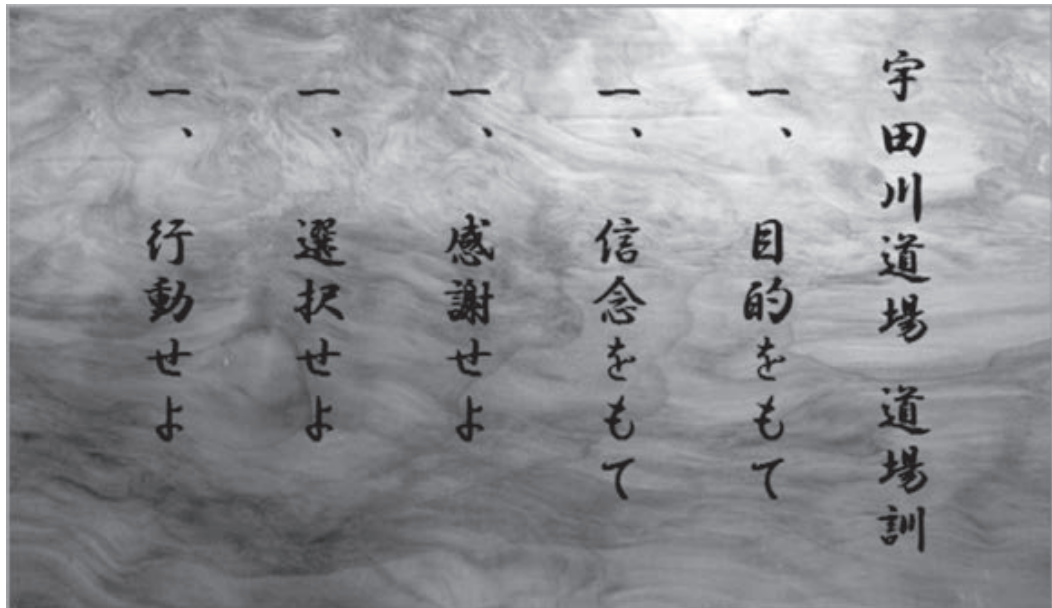 宇田川道場　道場訓
一、目的をもて
一、信念をもて
一、感謝せよ
一、選択せよ
一、行動せよ